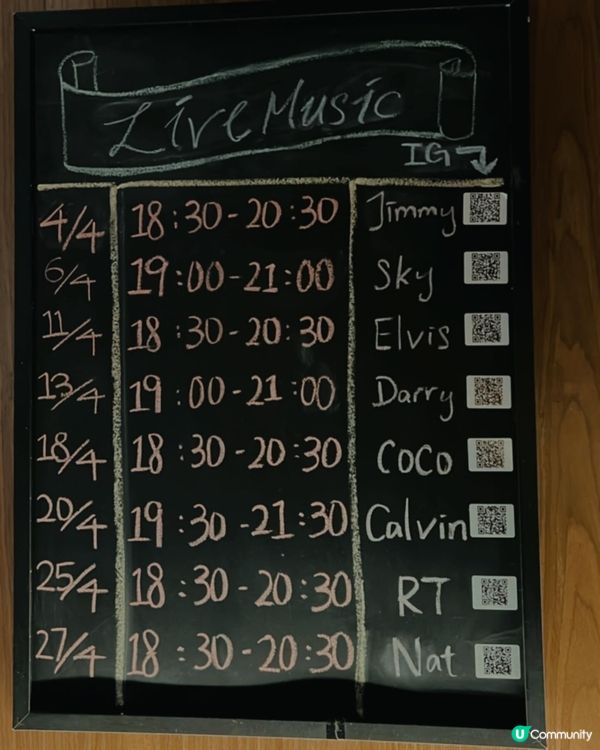 Live Music
IG
4/4 18:30-20:30 Jimmy
6/4 19:00-21:00 Sky
11/4 18:30-20:30 Elvis
13/4 19:00-21:00 Darry
18/4 18:30-20:30 CoCo
20/4 19:30-21:30 Calvin
25/4 18:30-20:30 RT
27/4 18:30-20:30 Nat
U Community